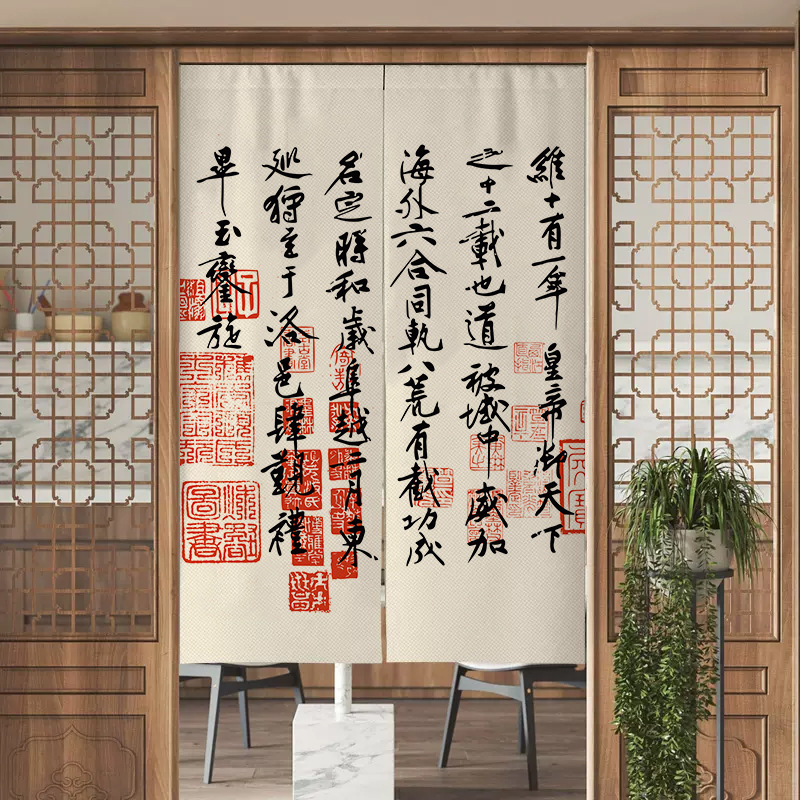 維十有一年皇帝御天下
之十二載也道被域中威加
海外六合同軌八荒有截功成
名定時和歲阜越二月東
巡狩至于洛邑肆覲禮
畢玉鑾旋